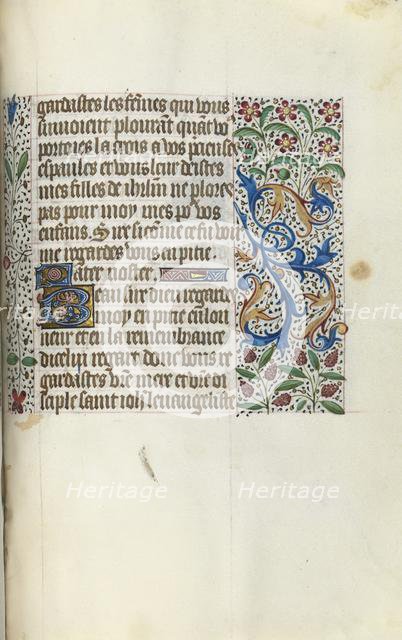 gardastes les femes qui vous
suivoient plourant quat vo
porties la crois a vos precieuses
espaules et vous leur deistes
mes filles de iherlm ne plores
pas pour moy mes por vos
enfans Sire sicome ce fu voir
me regardes vous en pitie
Pater noster
Beau sire dieu regarde
moy en pitie en lon
neur et en la remembrance
dicelui regart dont vous re
gardastes vre mere et vre di
saple saint ioh leuangeliste
Heritage
Heritage
Heritage
Heritage